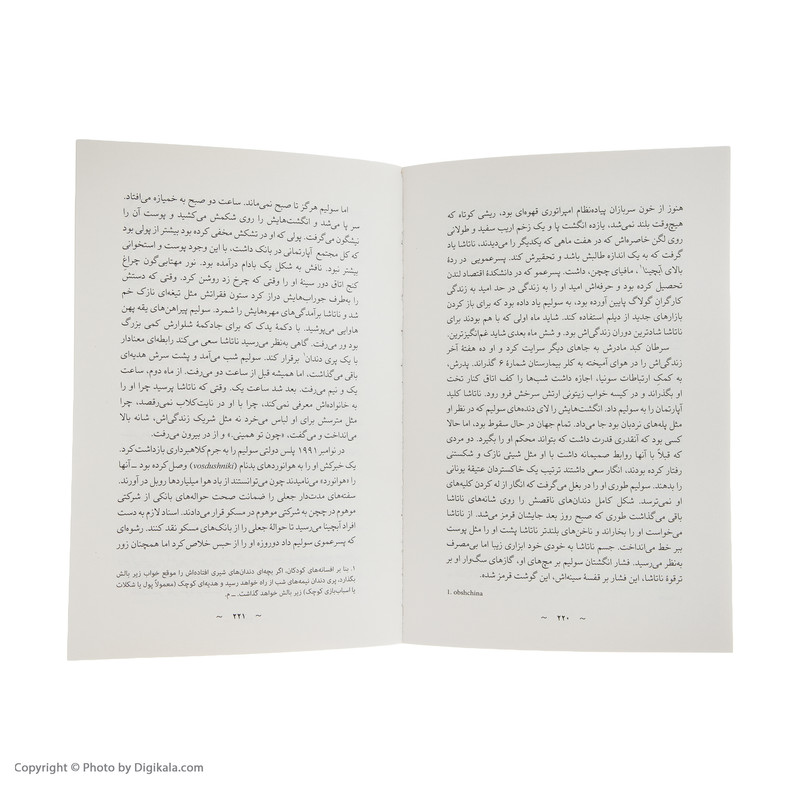 هنوز از خون سربازان پیاده‌نظام امپراتوری قهوه‌ای بود، ریشی کوتاه که
هیچ‌وقت بلند نمی‌شد، یازده انگشت پا و یک زخم اریب سفید و طولانی
روی لگن خاصره‌اش که در هفت ماهی که یکدیگر را می‌دیدند، ناتاشا یاد
گرفت که به یک اندازه طالبش باشد و تحقیرش کند. پسرعمویی در ردهٔ
بالای آبچینا۱، مافیای چچن، داشت. پسرعمو که در دانشکدهٔ اقتصاد لندن
تحصیل کرده بود و حرفه‌اش امید او را به زندگی در حد امید به زندگی
کارگران گولاگ پایین آورده بود، به سولیم یاد داده بود که برای باز کردن
بازارهای جدید از دیلم استفاده کند. شاید ماه اولی که با هم بودند برای
ناتاشا شادترین دوران زندگی‌اش بود، و شش ماه بعدی شاید غم‌انگیزترین.
سرطان کبد مادرش به جاهای دیگر سرایت کرد و او ده هفتهٔ آخر
زندگی‌اش را در هوای آمیخته به کلر بیمارستان شمارهٔ ۶ گذراند. پدرش،
به کمک ارتباطات سونیا، اجازه داشت شب‌ها را کف اتاق کنار تخت
او بگذراند و در کیسه خواب زیتونی ارتش سرخش فرو رود. ناتاشا کلید
آپارتمان را به سولیم داد. انگشت‌هایش را لای دنده‌های سولیم که در نظر او
مثل پله‌های نردبان بود جا می‌داد. تمام جهان در حال سقوط بود، اما حالا
کسی بود که آنقدری قدرت داشت که بتواند محکم او را بگیرد. دو مردی
که قبلاً با آنها روابط صمیمانه داشت با او مثل شیئی نازک و شکستنی
رفتار کرده بودند، انگار سعی داشتند ترتیب یک خاکستردان عتیقهٔ یونانی
را بدهند. سولیم طوری او را در بغل می‌گرفت که انگار از له کردن کلیه‌های
او نمی‌ترسد. شکل کامل دندان‌های ناقصش را روی شانه‌های ناتاشا
باقی می‌گذاشت طوری که صبح روز بعد جایشان قرمز می‌شد. از ناتاشا
می‌خواست او را بخاراند و ناخن‌های بلندتر ناتاشا پشت او را مثل پوست
ببر خط می‌انداخت. جسم ناتاشا به خودی خود ابزاری زیبا اما بی‌مصرف
به‌نظر می‌رسید. فشار انگشتان سولیم بر مچ‌های او، گازهای سگ‌وار او بر
ترقوهٔ ناتاشا، این فشار بر قفسهٔ سینه‌اش، این گوشت قرمز شده.
1. obshchina
~ ۲۲۰ ~
اما سولیم هرگز تا صبح نمی‌ماند. ساعت دو صبح به خمیازه می‌افتاد.
سر پا می‌شد و انگشت‌هایش را روی شکمش می‌کشید و پوست آن را
نیشگون می‌گرفت. پولی که او در تشکش مخفی کرده بود بیشتر از پولی بود
که کل مجتمع آپارتمانی در بانک داشت، با این وجود پوست و استخوانی
بیشتر نبود. نافش به شکل یک بادام درآمده بود. نور مهتابی‌گون چراغ
کنج اتاق دور سینهٔ او را وقتی که چرخ زد روشن کرد. وقتی که دستش
را به‌طرف جوراب‌هایش دراز کرد ستون فقراتش مثل تیغه‌ای نازک خم
شد و ناتاشا برآمدگی‌های مهره‌هایش را شمرد. سولیم پیراهن‌های یقه پهن
هاوایی می‌پوشید. با دکمهٔ یدک که برای جادکمهٔ شلوارش کمی بزرگ
بود ور می‌رفت. گاهی به‌نظر می‌رسید ناتاشا سعی می‌کند رابطه‌ای معنادار
با یک پری دندان۱ برقرار کند. سولیم شب می‌آمد و پشت سرش هدیه‌ای
باقی می‌گذاشت، اما همیشه قبل از ساعت دو می‌رفت. از ماه دوم، ساعت
یک و نیم می‌رفت. بعد شد ساعت یک. وقتی که ناتاشا پرسید چرا او را
به خانواده‌اش معرفی نمی‌کند، چرا با او در نایت‌کلاب نمی‌رقصد، چرا
مثل مترسش برای او لباس می‌خرد نه مثل شریک زندگی‌اش، شانه بالا
می‌انداخت و می‌گفت، «چون تو همینی.» و از در بیرون می‌رفت.
در نوامبر ۱۹۹۱ پلس دولتی سولیم را به جرم کلاهبرداری بازداشت کرد.
یک خبرکش او را به هوانوردهای بدنام (vosdushniki) وصل کرده بود ــ آنها
را «هوانورد» می‌نامیدند چون می‌توانستند از باد هوا میلیاردها روبل درآورند.
سفته‌های مدت‌دار جعلی را ضمانت صحت حواله‌های بانکی از شرکتی
موهوم در چچن به شرکتی موهوم در مسکو قرار می‌دادند. اسناد لازم به دست
افراد آبچینا می‌رسید تا حوالهٔ جعلی را از بانک‌های مسکو نقد کنند. رشوه‌ای
که پسرعموی سولیم داد دوروزه او را از حبس خلاص کرد اما همچنان زور
۱. بنا بر افسانه‌های کودکان، اگر بچه‌ای دندان‌های شیری افتاده‌اش را موقع خواب زیر بالش
بگذارد، پری دندان نیمه‌های شب از راه خواهد رسید و هدیه‌ای کوچک (معمولاً پول یا شکلات
یا اسباب‌بازی کوچک) زیر بالش خواهد گذاشت. ــ م.
~ ۲۲۱ ~
Copyright © Photo by Digikala.com